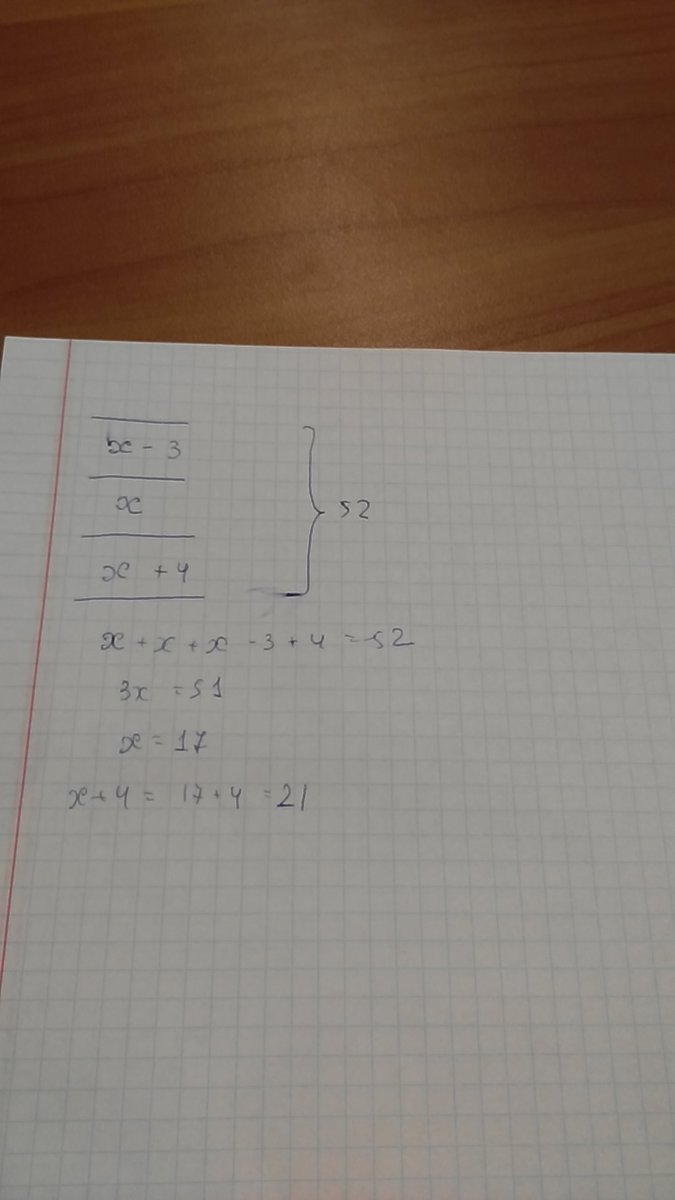 x - 3
x
x + 4
52
x + x + x - 3 + 4 = 52
3x = 51
x = 17
x + 4 = 17 + 4 = 21